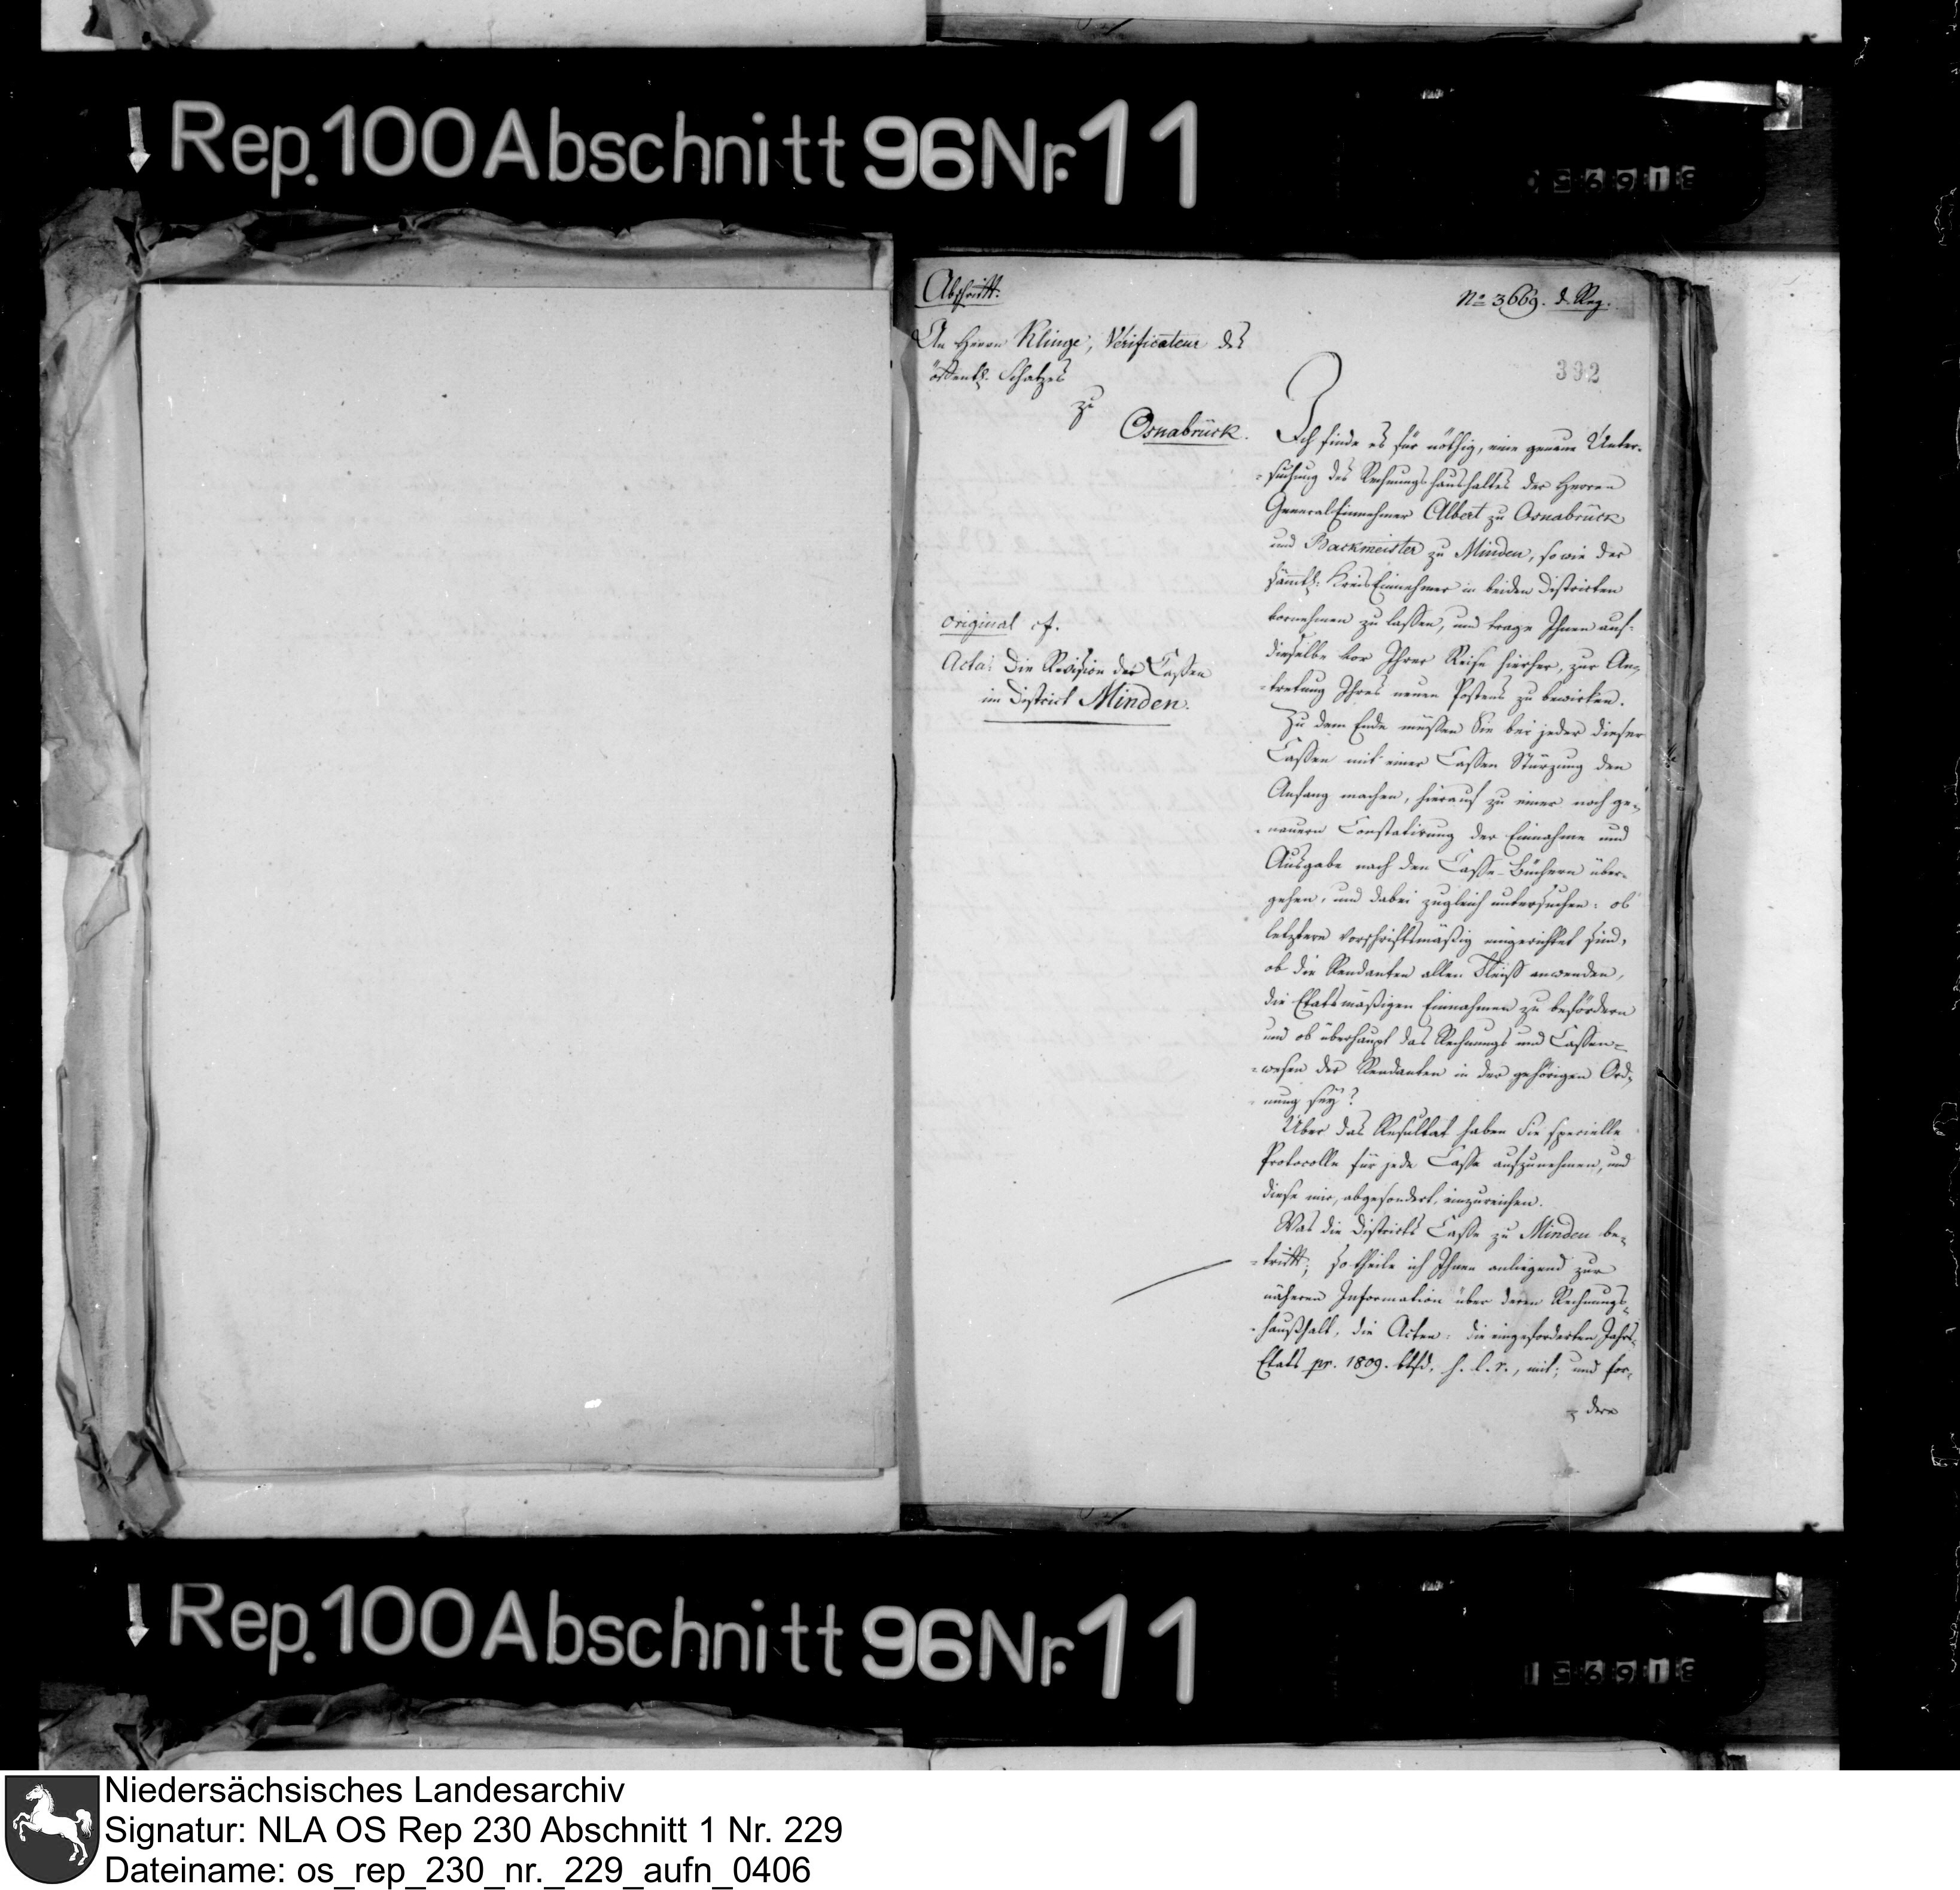 Rep. 100 Abschnitt 96 Nr. 11
Abschrift.
No 3669. d. Reg.
An Herrn Klinge, Verificateur des
öffentl. Schatzes
zu
Osnabrück.
392
Ich finde es für nöthig, eine genaue Unter-
-suchung des Rechnungshaushaltes der Herren
General Einnehmer Albert zu Osnabrück
und Backmeister zu Minden, so wie der
sämtl: Kreis Einnehmer in beiden Districten
vornehmen zu lassen, und trage Ihnen auf,
dieselbe vor Ihrer Reise hierher, zur An-
-tretung Ihres neuen Postens zu bewirken.
Zu dem Ende müssen Sie bei jeder dieser
Cassen mit einer Cassen Stürzung den
Anfang machen, hierauf zu einer noch ge-
-nauern Constatirung der Einnahme und
Ausgabe nach den Casse-Büchern über-
gehen, und dabei zugleich untersuchen: ob
letztere vorschriftsmäßig eingerichtet sind,
ob die Rendanten allen Fleiß anwenden,
die Etatsmäßigen Einnahmen zu befördern
und ob überhaupt das Rechnungs und Cassen-
-wesen der Rendanten in der gehörigen Ord-
-nung sey?
Über das Resultat haben Sie specielle
Protocolle für jede Casse aufzunehmen, und
diese mir, abgesondert, einzureichen.
Was die Districts Casse zu Minden be-
-trifft; so theile ich Ihnen anliegend zur
näheren Information über deren Rechnungs-
-haußhalt, die Acten: die eingeforderten Jahrs-
Etats pr. 1809. btfd. h. l. r., mit; und for-
- dere
original cf.
Acta: Die Revision der Cassen
im District Minden.
Rep. 100 Abschnitt 96 Nr. 11
Niedersächsisches Landesarchiv
Signatur: NLA OS Rep 230 Abschnitt 1 Nr. 229
Dateiname: os_rep_230_nr._229_aufn_0406